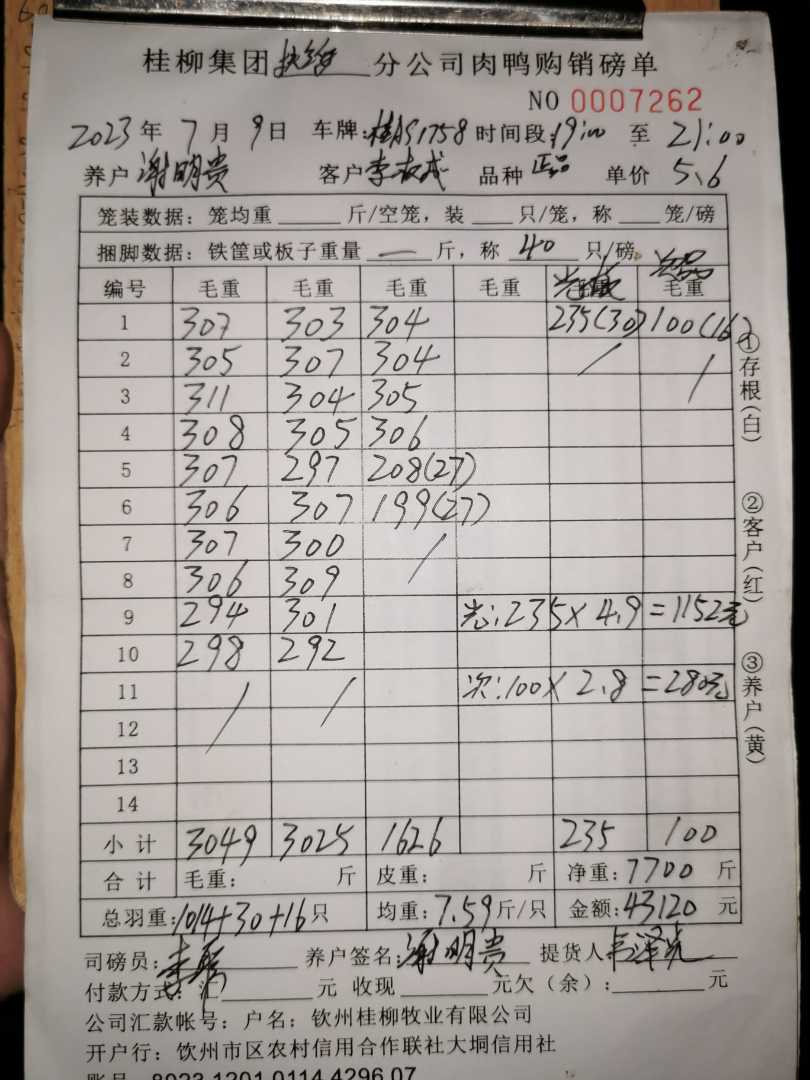 桂柳集团 分公司肉鸭购销磅单
NO 0007262
2023年 7月 9日 车牌:桂AS1758 时间段:19:00 至 21:00
养户 谢明贵 客户 李 成 品种 正品 单价 5.6
笼装数据: 笼均重 ____ 斤/空笼, 装 ____ 只/笼, 称 ____ 笼/磅
捆脚数据: 铁筐或板子重量 — 斤, 称 40 只/磅
编号 毛重 毛重 毛重 毛重 毛重 次品 毛重
1 307 303 304 235(30) 100(16)
2 305 307 304 / /
3 311 304 305
4 308 305 306
5 307 297 208(27)
6 306 307 199(27)
7 307 300 /
8 306 309
9 294 301 光:235×4.9=1152元
10 298 292
11 / / 次:100×2.8=280元
12
13
14
小计 3049 3025 1626 235 100
合计 毛重: 斤 皮重: 斤 净重:7700 斤
总羽重:1014+30+16只 均重:7.59斤/只 金额:43120 元
司磅员: 李 养户签名:谢明贵 提货人 韦泽光
付款方式: 汇 ____ 元 收现 ____ 元欠(余): ____ 元
公司汇款帐号: 户名: 钦州桂柳牧业有限公司
开户行: 饮州市区农村信用合作联社大垌信用社
账号 8023 1201 0114 4296 07
①存根(白)
②客户(红)
③养户(黄)